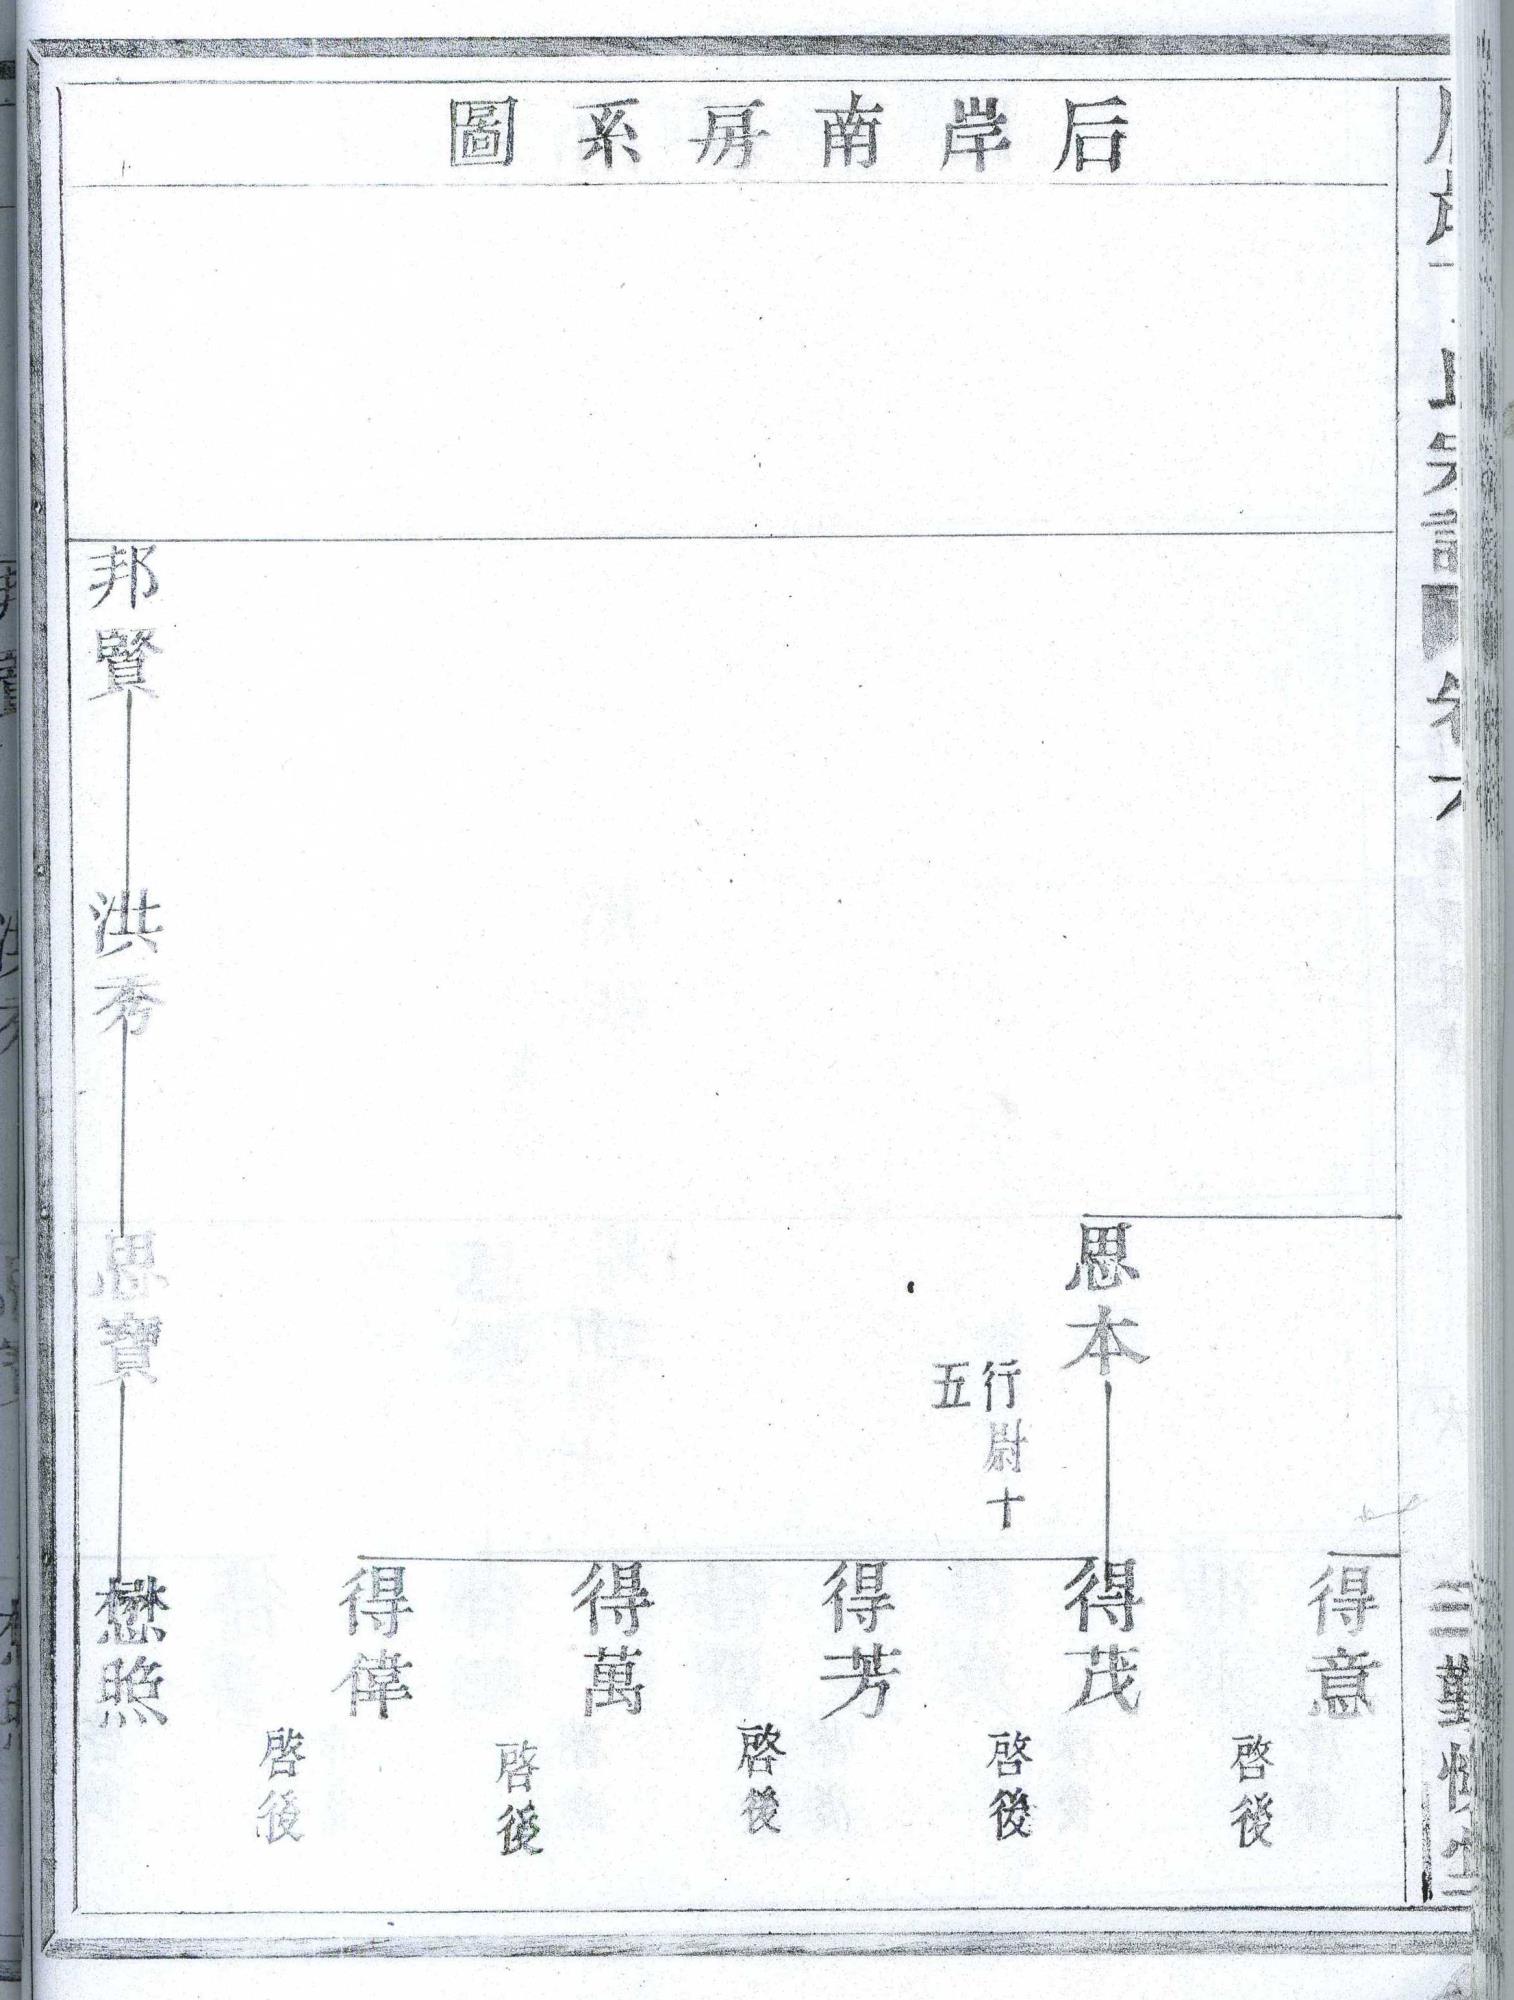 后岸南房系圖
得意
啓後
思本
行尉十
五
得茂
啓後
得芳
啓後
得萬
啓後
得偉
啓後
邦賢
洪秀
思寶
懋照